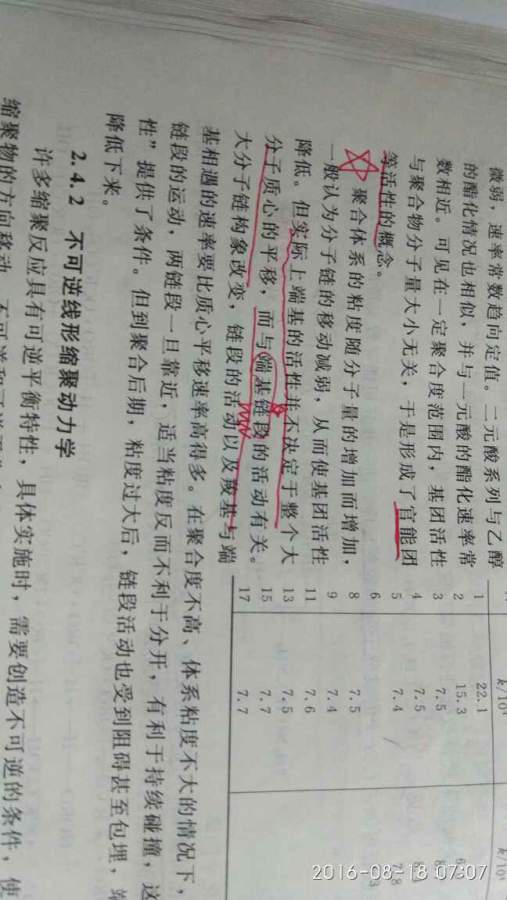 微弱，速率常数趋向定值。二元酸系列与乙醇
的酯化情况也相似，并与一元酸的酯化速率常
数相近。可见在一定聚合度范围内，基团活性
与聚合物分子量大小无关，于是形成了官能团
等活性的概念。
聚合体系的粘度随分子量的增加而增加，
一般认为分子链的移动减弱，从而使基团活性
降低。但实际上端基的活性并不决定于整个大
分子质心的平移，而与端基链段的活动有关。
大分子链构象改变，链段的活动以及羧基与端
k/10⁴ k/10⁴
1 22.1
2 15.3
3 7.5
4 7.5
5 7.4
6
8 7.5
9 7.4
11 7.6
13 7.5
15 7.7
17 7.7
基相遇的速率要比质心平移速率高得多。在聚合度不高、体系粘度不大的情况下，
链段的运动，两链段一旦靠近，适当粘度反而不利于分开，有利于持续碰撞，这
性”提供了条件。但到聚合后期，粘度过大后，链段活动也受到阻碍甚至包埋，端
降低下来。
2.4.2 不可逆线形缩聚动力学
许多缩聚反应具有可逆平衡特性，具体实施时，需要创造不可逆的条件，使
缩聚物的方向移动
2016-08-18 07:07